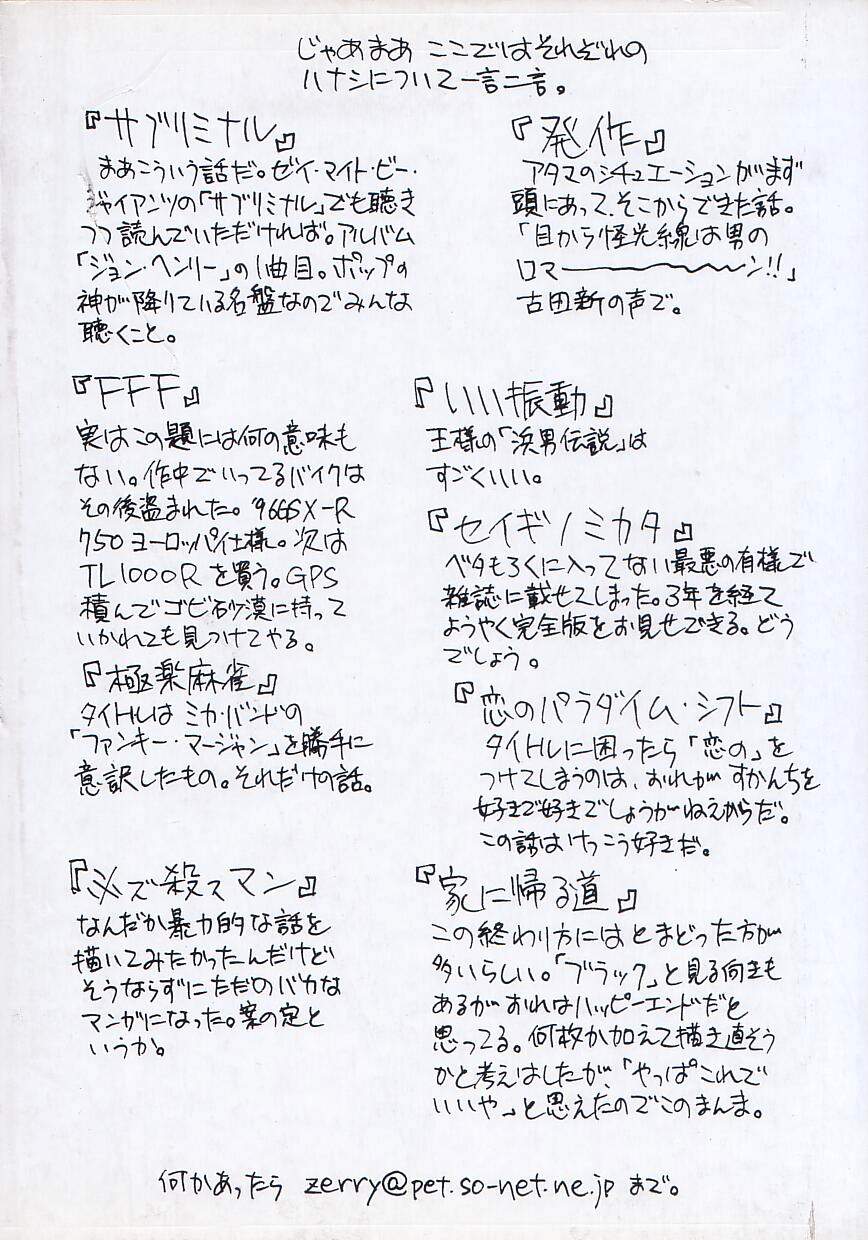 じゃあまあ ここではそれぞれの
ハナシについて一言二言。
『サブリミナル』
まあこういう話だ。ゼイ・マイト・ビー・
ジャイアンツの「サブリミナル」でも聴き
つつ読んでいただければ。アルバム
「ジョン・ヘンリー」の1曲目。ポップの
神が降りている名盤なのでみんな
聴くこと。
『FFF』
実はこの題には何の意味も
ない。作中でいってるバイクは
その後盗まれた。'96GSX-R
750ヨーロッパ仕様。次は
TL1000Rを買う。GPS
積んでゴビ砂漠に持って
いかれても見つけてやる。
『極楽麻雀』
タイトルは ミカ・バンドの
「ファンキー・マージャン」を勝手に
意訳したもの。それだけの話。
『必ズ殺スマン』
なんだか暴力的な話を
描いてみたかったんだけど
そうならずにただのバカな
マンガになった。案の定と
いうか。
『発作』
アタマのシチュエーションがまず
頭にあって、そこからできた話。
「目から怪光線は男の
ロマーーーーーン!!」
古田新の声で。
『いい振動』
王様の「浜男伝説」は
すごくいい。
『セイギノミカタ』
ベタもろくに入ってない最悪の有様で
雑誌に載せてしまった。3年を経て
ようやく完全版をお見せできる。どう
でしょう。
『恋のパラダイム・シフト』
タイトルに困ったら「恋の」を
つけてしまうのは、おれが すかんちを
好きで好きでしょうがねえからだ。
この話はけっこう好きだ。
『家に帰る道』
この終わり方にはとまどった方が
多いらしい。「ブラック」と見る向きも
あるがおれはハッピーエンドだと
思ってる。何枚か加えて描き直そう
かと考えはしたが、「やっぱこれで
いいや」と思えたのでこのまんま。
何かあったら zerry@pet.so-net.ne.jp まで。